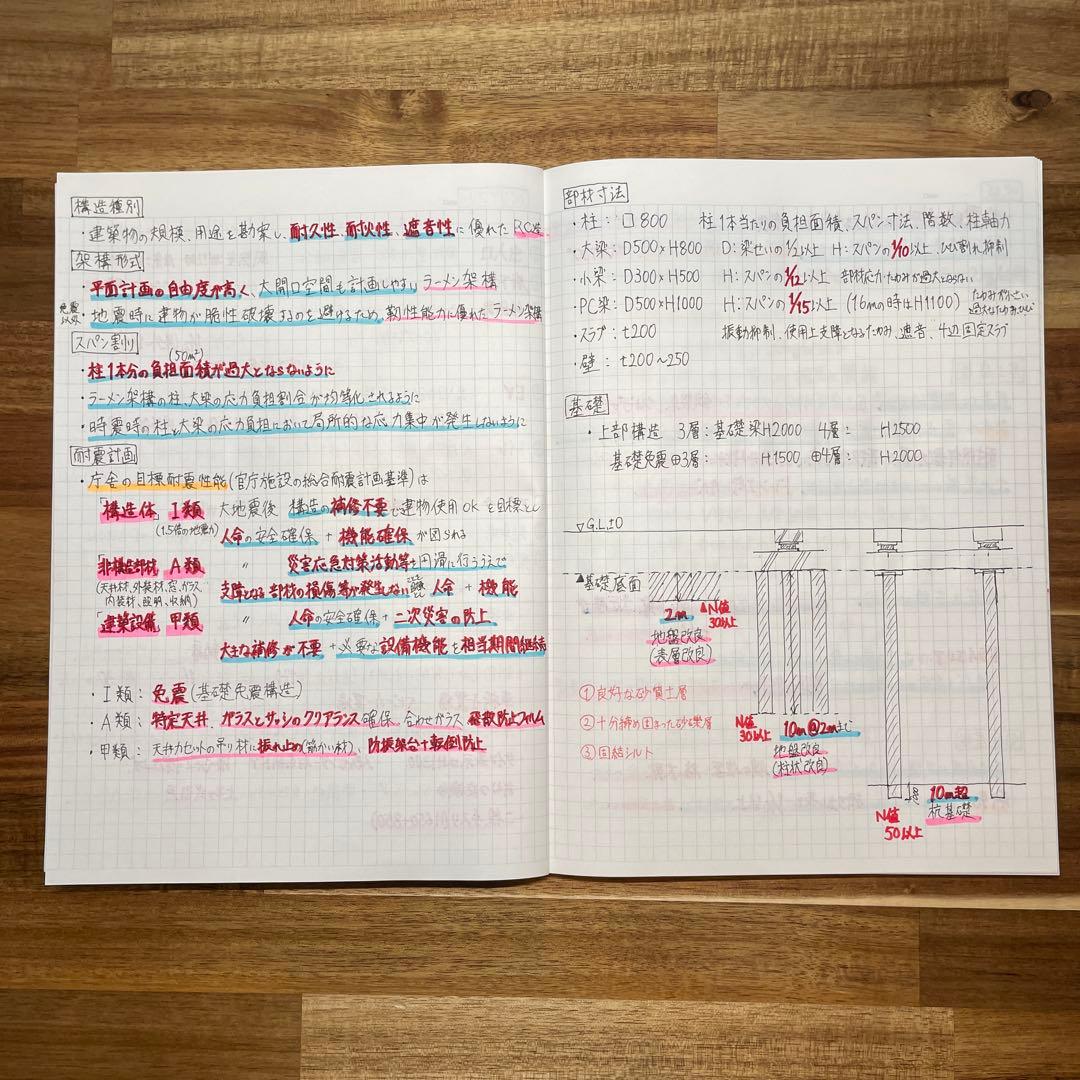 構造種別
・建築物の規模、用途を勘案し、耐久性 耐火性、遮音性に優れたRC造
架構形式
・平面計画の自由度が高く、大開口空間も計画しやすいラーメン架構
免震以外
・地震時に建物が脆性破壊するのを避けるため、靭性能力に優れたラーメン架構
スパン割り
(50m²)
・柱1本分の負担面積が過大とならないように
・ラーメン架構の柱、大梁の応力負担割合が均等化されるように
・時震時の柱、大梁の応力負担において局所的な応力集中が発生しないように
耐震計画
・庁舎の目標耐震性能(官庁施設の総合耐震計画基準)は
「構造体」Ⅰ類 大地震後 構造の補修不要で建物使用OKを目標とし
(1.5倍の地震力) 人命の安全確保 + 機能確保が図られる
「非構造部材」A類 〃 災害応急対策活動等を円滑に行ううえで
(天井材、外装材、窓、ガラス、内装材、照明、収納)
支障となる部材の損傷等が発生しない 人命 + 機能
「建築設備」甲類 〃 人命の安全確保 + 二次災害の防止
大きな補修が不要 + 必要な設備機能を相当期間継続
・Ⅰ類: 免震(基礎免震構造)
・A類: 特定天井、ガラスとサッシのクリアランス確保、合わせガラス 飛散防止フィルム
・甲類: 天井カセットの吊り材に振れ止め(筋かい材)、防振架台+転倒防止
部材寸法
・柱: □800 柱1本当たりの負担面積、スパン寸法、階数、柱軸力
・大梁: D500×H800 D:梁せいの1/2以上 H:スパンの1/10以上、ひび割れ抑制
・小梁: D300×H500 H:スパンの1/12以上 部材応力・たわみが過大とならない
・PC梁: D500×H1000 H:スパンの1/15以上(16mの時はH1100)
・スラブ: t200 振動抑制、使用上支障となるたわみ、遮音、4辺固定スラブ
・壁: t200〜250
基礎
・上部構造 3層:基礎梁H2000 4層: H2500
基礎免震 3層: H1500, 4層: H2000
▽G.L±0
▲基礎底面
2m
▲N値30以上
地盤改良
(表層改良)
①良好な砂質土層
②十分締め固まった砂礫層
③固結シルト
N値30以上
10m@2mまで
地盤改良
(柱状改良)
10m超
杭基礎
N値50以上